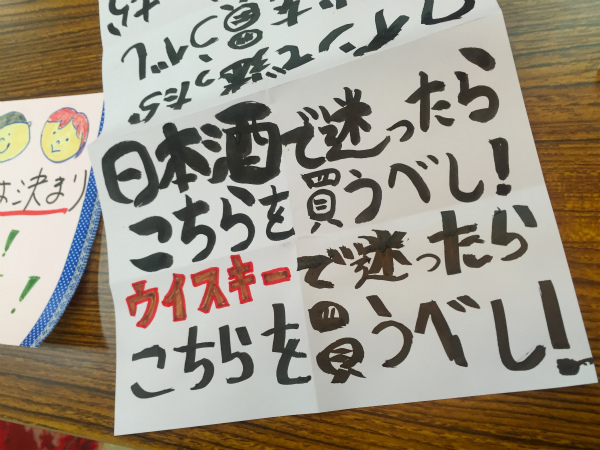 ワインで迷ったら
日本酒で迷ったら
こちらを買うべし!
ウイスキーで迷ったら
こちらを買うべし!
は決まり
!
!